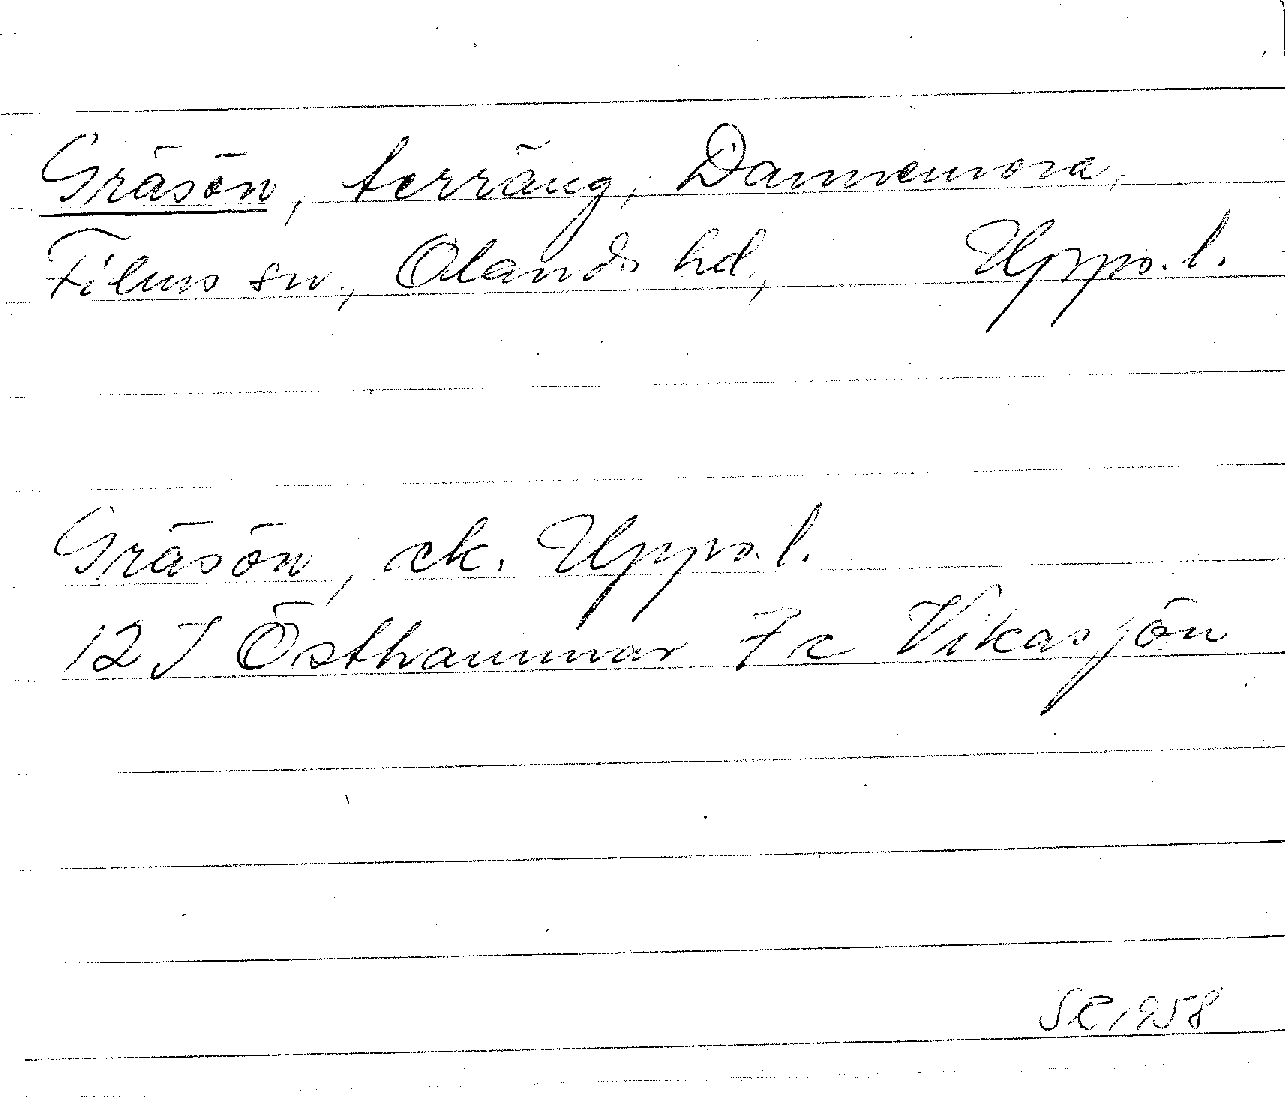 Gräsön, terräng, Dannemora,
Films sn, Olands hd, Upps.l.
Gräsön, ek. Upps.l.
12 I Östhammar 7c Vikasjön
1958